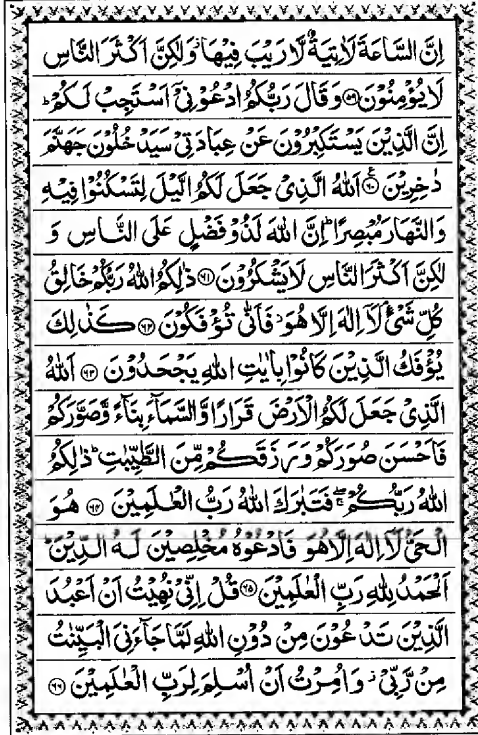 اِنَّ السَّاعَةَ لَاٰتِيَةٌ لَّا رَيْبَ فِيْهَا وَلٰكِنَّ اَكْثَرَ النَّاسِ
لَا يُؤْمِنُوْنَ ۝۵۹ وَقَالَ رَبُّكُمُ ادْعُوْنِيْٓ اَسْتَجِبْ لَكُمْ ؕ
اِنَّ الَّذِيْنَ يَسْتَكْبِرُوْنَ عَنْ عِبَادَتِيْ سَيَدْخُلُوْنَ جَهَنَّمَ
دٰخِرِيْنَ ۝۶۰ ع اَللّٰهُ الَّذِيْ جَعَلَ لَكُمُ الَّيْلَ لِتَسْكُنُوْا فِيْهِ
وَالنَّهَارَ مُبْصِرًا ؕ اِنَّ اللّٰهَ لَذُوْ فَضْلٍ عَلَى النَّاسِ وَ
لٰكِنَّ اَكْثَرَ النَّاسِ لَا يَشْكُرُوْنَ ۝۶۱ ذٰلِكُمُ اللّٰهُ رَبُّكُمْ خَالِقُ
كُلِّ شَيْءٍ لَآ اِلٰهَ اِلَّا هُوَ ۚ فَاَنّٰى تُؤْفَكُوْنَ ۝۶۲ كَذٰلِكَ
يُؤْفَكُ الَّذِيْنَ كَانُوْا بِاٰيٰتِ اللّٰهِ يَجْحَدُوْنَ ۝۶۳ اَللّٰهُ
الَّذِيْ جَعَلَ لَكُمُ الْاَرْضَ قَرَارًا وَّالسَّمَآءَ بِنَآءً وَّصَوَّرَكُمْ
فَاَحْسَنَ صُوَرَكُمْ وَرَزَقَكُمْ مِّنَ الطَّيِّبٰتِ ؕ ذٰلِكُمُ
اللّٰهُ رَبُّكُمْ ۖ فَتَبٰرَكَ اللّٰهُ رَبُّ الْعٰلَمِيْنَ ۝۶۴ هُوَ
الْحَيُّ لَآ اِلٰهَ اِلَّا هُوَ فَادْعُوْهُ مُخْلِصِيْنَ لَهُ الدِّيْنَ ؕ
اَلْحَمْدُ لِلّٰهِ رَبِّ الْعٰلَمِيْنَ ۝۶۵ قُلْ اِنِّيْ نُهِيْتُ اَنْ اَعْبُدَ
الَّذِيْنَ تَدْعُوْنَ مِنْ دُوْنِ اللّٰهِ لَمَّا جَآءَنِيَ الْبَيِّنٰتُ
مِنْ رَّبِّيْ ۫ وَاُمِرْتُ اَنْ اُسْلِمَ لِرَبِّ الْعٰلَمِيْنَ ۝۶۶